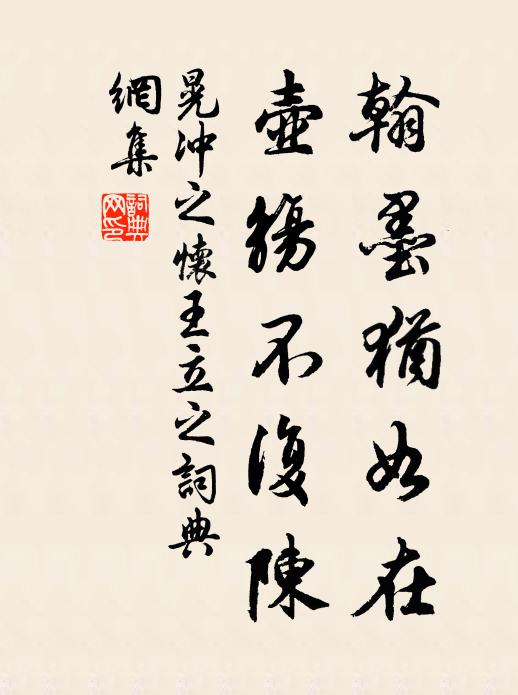 翰墨猶如在
壺觴不復陳
晁沖之懷王立之詞典
網集
詞典
网印